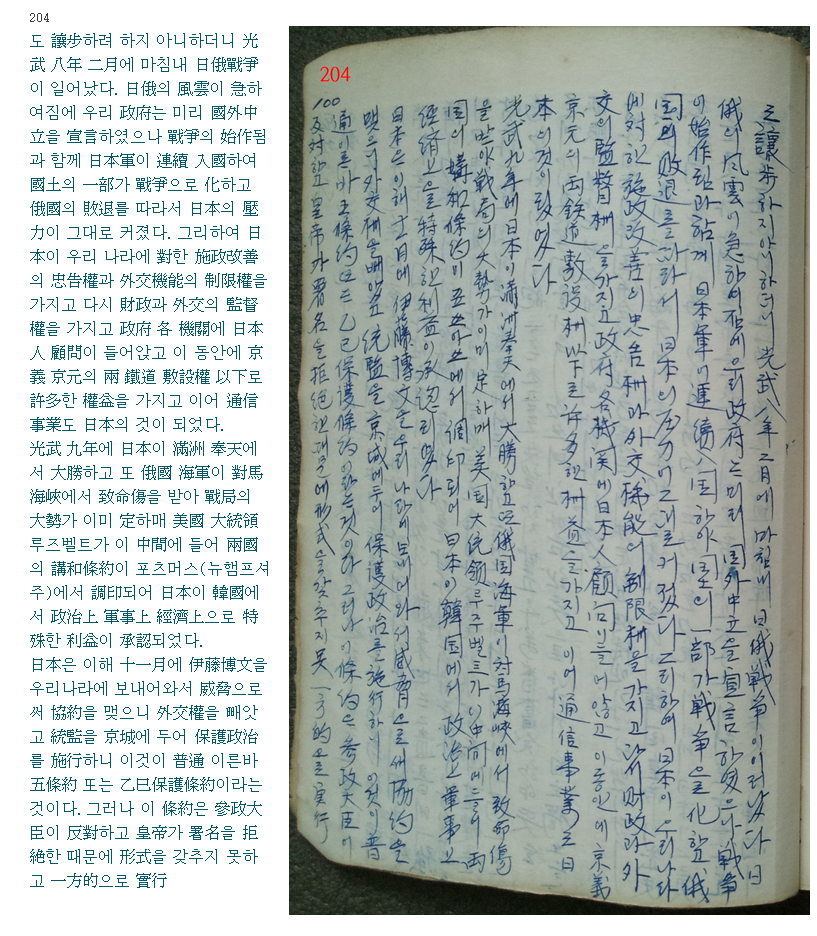 204
도 讓步하려 하지 아니하더니 光
武 八年 二月에 마침내 日俄戰爭
이 일어났다. 日俄의 風雲이 急하
여짐에 우리 政府는 미리 國外中
立을 宣言하였으나 戰爭의 始作됨
과 함께 日本軍이 連續 入國하여
國土의 一部가 戰爭으로 化하고
俄國의 敗退를 따라서 日本의 壓
力이 그대로 커졌다. 그리하여 日
本이 우리 나라에 對한 施政改善
의 忠告權과 外交機能의 制限權을
가지고 다시 財政과 外交의 監督
權을 가지고 政府 各 機關에 日本
人 顧問이 들어앉고 이 동안에 京
義 京元의 兩 鐵道 敷設權 以下로
許多한 權益을 가지고 이어 通信
事業도 日本의 것이 되었다.
光武 九年에 日本이 滿洲 奉天에
서 大勝하고 또 俄國 海軍이 對馬
海峽에서 致命傷을 받아 戰局의
大勢가 이미 定하매 美國 大統領
루즈벨트가 이 中間에 들어 兩國
의 講和條約이 포츠머스(뉴햄프셔
주)에서 調印되어 日本이 韓國에
서 政治上 軍事上 經濟上으로 特
殊한 利益이 承認되었다.
日本은 이해 十一月에 伊藤博文을
우리나라에 보내어와서 威脅으로
써 協約을 맺으니 外交權을 빼앗
고 統監을 京城에 두어 保護政治
를 施行하니 이것이 普通 이른바
五條約 또는 乙巳保護條約이라는
것이다. 그러나 이 條約은 參政大
臣이 反對하고 皇帝가 署名을 拒
絶한 때문에 形式을 갖추지 못하
고 一方的으로 實行
204
도 讓步하지아니하더니 光武八年 二月에 마침내 日俄戦争이 이러낫다 日
俄의 風雲이 急하여짐에 우리政府는 미리 國外中立을 宣言하엿으나 戦争
이 始作됨과 함께 日本軍이 連續入国하야 国土의 一部가 戦争을 化하고 俄
国의 敗退를 따라서 日本의 压力이 그대로 커젓다 그리하여 日本이 우리나라
에 対한 施政改善의 忠告权과 外交機能의 制限权을 가지고 다시 財政과 外
交의 監督权을 가지고 政府各機関에 日本人 顧问이 들어 앉고 이 동안에 京義
京元의 両鉄道 敷設权以下로 许多한 权益을 가지고 이어 通信事業도 日
本의 것이 되엿다
光武九年에 日本이 滿洲奉天에서 大勝하고 또 俄国海軍이 対馬海峽에서 致命傷
을 받아 戦局의 大勢가 이미 定하매 美国大统领 루주벨트가 이 中间에 들어 両
国의 構和條約이 포쓰마쓰에서 調印되여 日本이 韓国에서 政治上 軍事上
经済上으로 特殊한 利益이 承認되엿다
日本은 이해 十一月에 伊藤博文을 우리나라에 보내여와서 威脅으로써 協约을
맺으니 外交权을 빼앗고 统監을 京城에 두어 保護政治를 施行하니 이것이 普
通 이른바 五條约 또는 乙巳保護條约이라는 것이다 그러나 이 條约은 參政大臣이
反対하고 皇帝가 署名을 拒絶한 때문에 形式을 갖추지 못 一方的으로 実行
100